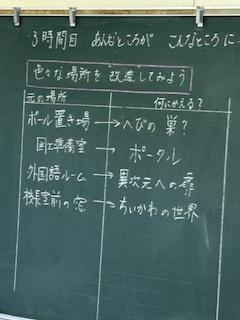 3時間目 あんなところが こんなところに…
色々な場所を改造してみよう
元の場所 何にかえる？
ボール置き場→へびの巣？
図工準備室→ポータル
外国語ルーム→異次元への扉
校長室前の窓→ちいかわの世界